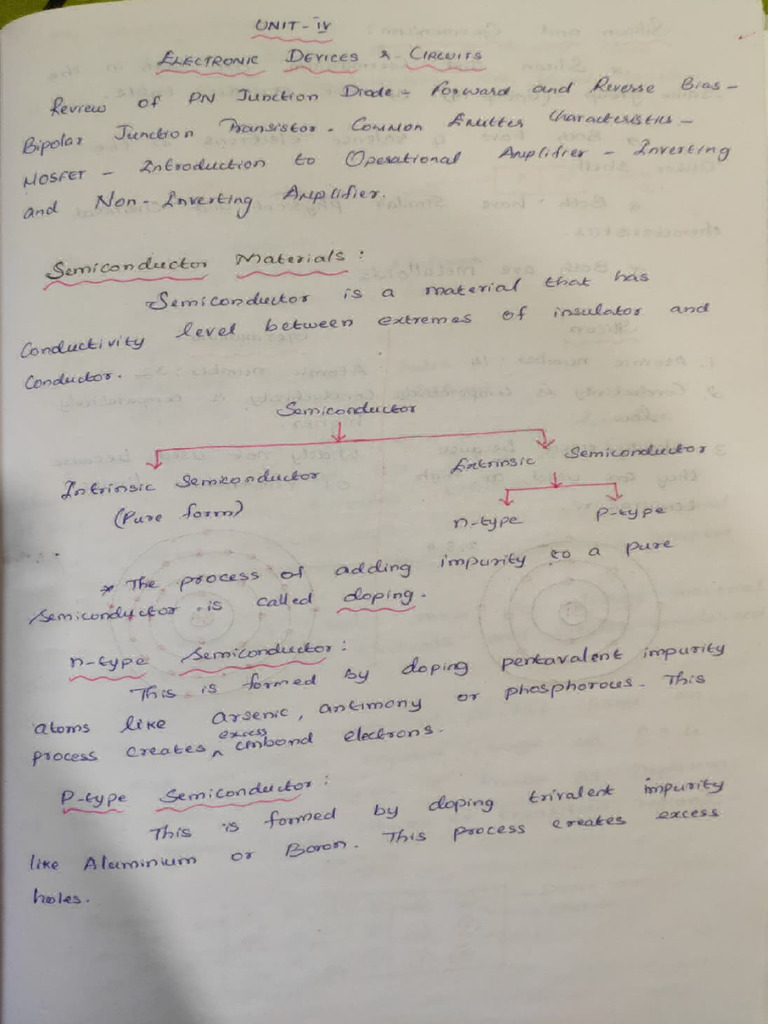 UNIT-IV
ELECTRONIC DEVICES & CIRCUITS
Review of PN Junction Diode - Forward and Reverse Bias -
Bipolar Junction Transistor - Common Emitter Characteristics -
MOSFET - Introduction to Operational Amplifier - Inverting
and Non-Inverting Amplifier.
Semiconductor Materials:
Semiconductor is a material that has
Conductivity level between extremes of insulator and
Conductor.
Semiconductor
Intrinsic Semiconductor
(Pure form)
Extrinsic Semiconductor
n-type P-type
* The process of adding impurity to a pure
semiconductor is called doping.
n-type Semiconductor:
This is formed by doping pentavalent impurity
atoms like arsenic, antimony or phosphorous. This
process creates excess unbond electrons.
P-type Semiconductor:
This is formed by doping trivalent impurity
like Aluminium or Boron. This process creates excess
holes.